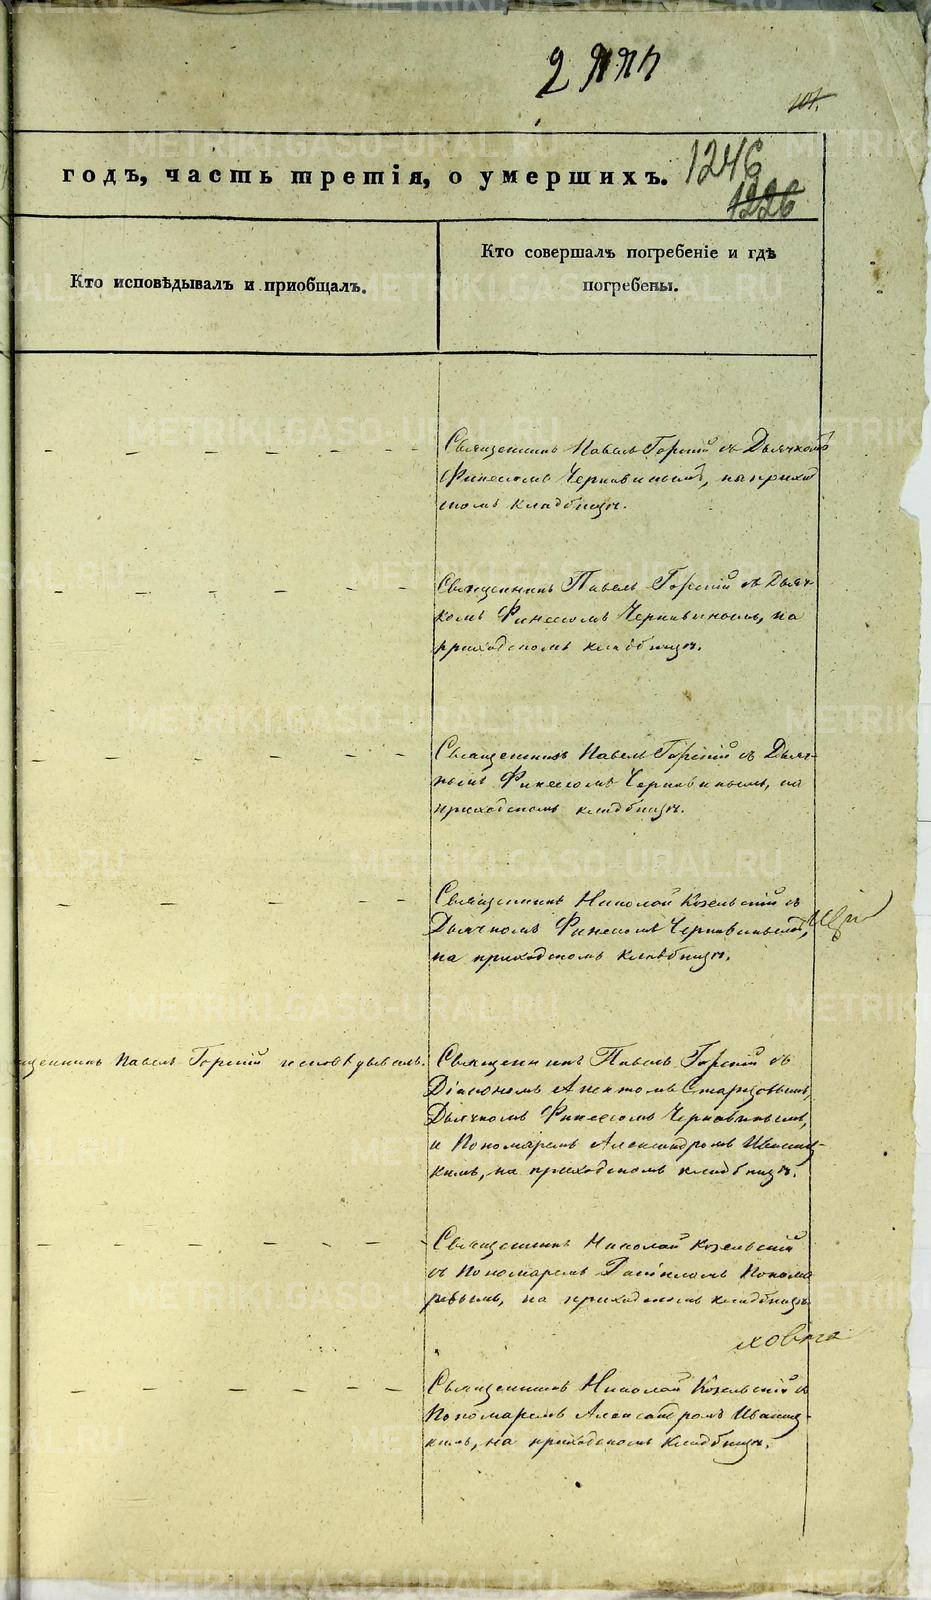 107.
1246
1226
годъ, часть третія, о умершихъ.
Кто исповѣдывалъ и приобщалъ.
Кто совершалъ погребеніе и гдѣ
погребены.
Священникъ Павелъ Горскій съ Дьячкомъ
Финеесомъ Чернавинымъ, на приход
скомъ кладбищѣ.
Священникъ Павелъ Горскій съ Дьяч-
комъ Финеесомъ Чернавинымъ, на
приходскомъ кладбищѣ.
Священникъ Павелъ Горскій съ Дьяч-
Финеесомъ Чернавинымъ, на
приходскомъ кладбищѣ.
Священникъ Николай Козельскій съ
Дьячкомъ Финеесомъ Чернавинымъ,
на приходскомъ кладбищѣ.
Павелъ Горскій исповѣдывалъ.
Священникъ Павелъ Горскій съ
Діакономъ Старцовымъ,
Дьячкомъ Финеесомъ Чернавинымъ,
и Пономаремъ Александромъ Иваниц-
кимъ, на приходскомъ кладбищѣ.
Священникъ Николай Козельскій
съ Пономаремъ Понома
ревымъ, на приходскомъ кладбищѣ.
Священникъ Николай Козельскій съ
Пономаремъ Александромъ Иваниц-
кимъ, на приходскомъ кладбищѣ.
METRIKI.GASO-URAL.RU